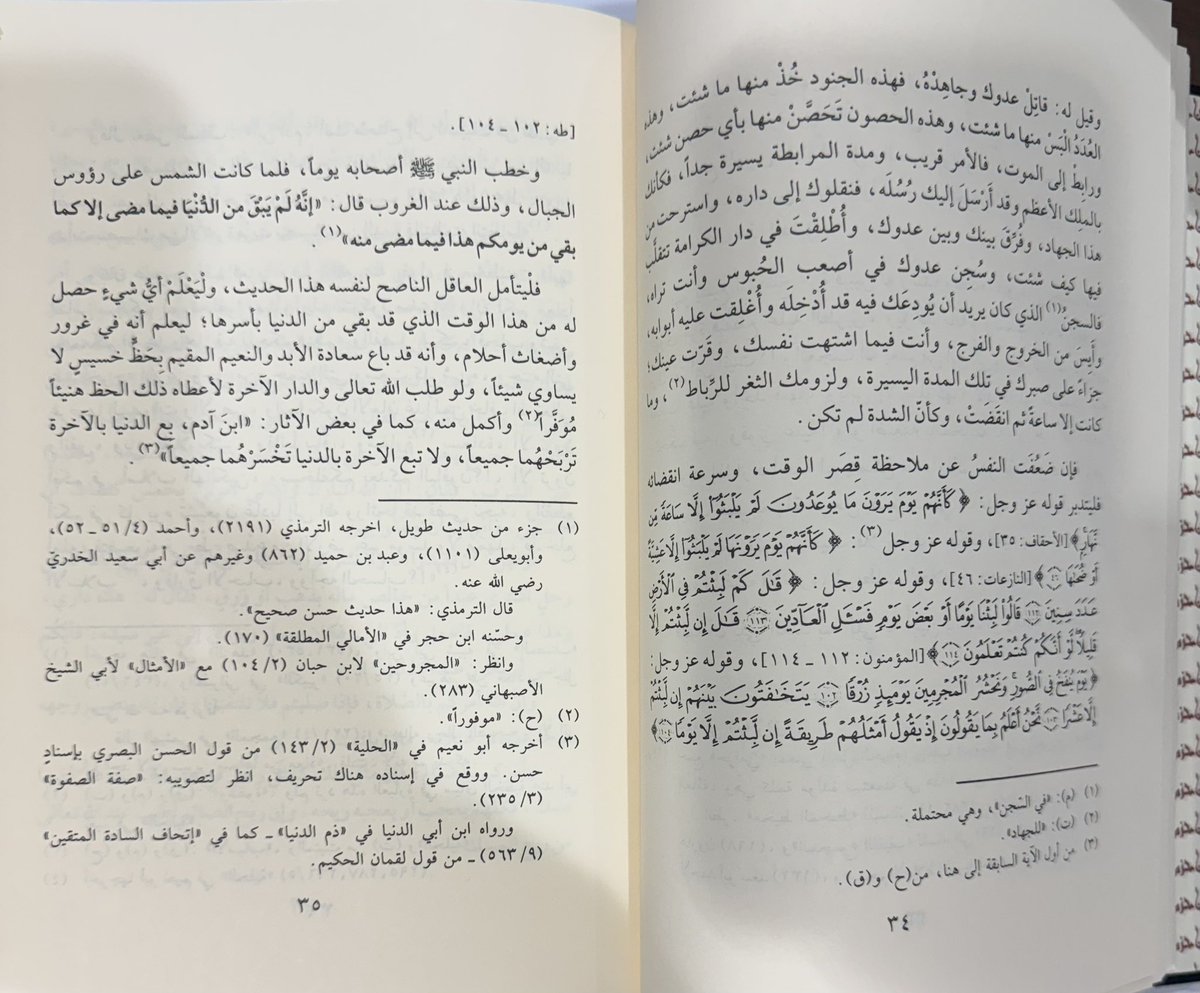 وقيل له: قاتِلْ عدوك وجاهِدْهُ، فهذه الجنود خُذْ منها ما شئت، وهذه
العُدَدُ الْبَسْ منها ما شئت، وهذه الحصون تَحَصَّنْ منها بأي حصن شئت،
ورابِطْ إلى الموت، فالأمر قريب، ومدة المرابطة يسيرة جداً، فكأنك
بالملك الأعظم وقد أَرْسَلَ إليك رُسُلَه، فنقلوك إلى داره، واسترحت من
هذا الجهاد، وفُرِّقَ بينك وبين عدوك، وأُطْلِقْتَ في دار الكرامة تتقلَّب
فيها كيف شئت، وسُجِن عدوك في أصعب الحُبوس وأنت تراه،
فالسجنُ(١) الذي كان يريد أن يُودِعَك فيه قد أُدْخِلَه وأُغْلِقت عليه أبوابه،
وأَيِسَ من الخروج والفرج، وأنت فيما اشتهت نفسك، وقَرّت عينك؛
جزاءً على صبرك في تلك المدة اليسيرة، ولزومك الثغر للرِّباط(٢)، وما
كانت إلا ساعةً ثم انقَضَتْ، وكأنّ الشدة لم تكن.
فإن ضَعُفَت النفسُ عن ملاحظة قِصَر الوقت، وسرعة انقضائه
فليتدبر قوله عز وجل: ﴿كَأَنَّهُمْ يَوْمَ يَرَوْنَ مَا يُوعَدُونَ لَمْ يَلْبَثُوٓا۟ إِلَّا سَاعَةً مِّن
نَّهَارٍۭ﴾ [الأحقاف: ٣٥]، وقوله عز وجل(٣): ﴿كَأَنَّهُمْ يَوْمَ يَرَوْنَهَا لَمْ يَلْبَثُوٓا۟ إِلَّا عَشِيَّةً
أَوْ ضُحَىٰهَا ٤٦﴾ [النازعات: ٤٦]، وقوله عز وجل: ﴿قَٰلَ كَمْ لَبِثْتُمْ فِى ٱلْأَرْضِ
عَدَدَ سِنِينَ ١١٢ قَالُوا۟ لَبِثْنَا يَوْمًا أَوْ بَعْضَ يَوْمٍ فَسْـَٔلِ ٱلْعَآدِّينَ ١١٣ قَٰلَ إِن لَّبِثْتُمْ إِلَّا
قَلِيلًا لَّوْ أَنَّكُمْ كُنتُمْ تَعْلَمُونَ ١١٤﴾ [المؤمنون: ١١٢ ـ ١١٤]، وقوله عز وجل:
﴿يَوْمَ يُنفَخُ فِى ٱلصُّورِ وَنَحْشُرُ ٱلْمُجْرِمِينَ يَوْمَئِذٍ زُرْقًا ١٠٢ يَتَخَٰفَتُونَ بَيْنَهُمْ إِن لَّبِثْتُمْ
إِلَّا عَشْرًا ١٠٣ نَّحْنُ أَعْلَمُ بِمَا يَقُولُونَ إِذْ يَقُولُ أَمْثَلُهُمْ طَرِيقَةً إِن لَّبِثْتُمْ إِلَّا يَوْمًا ١٠٤﴾
(١) (م): «في السّجن»، وهي محتملة.
(٢) (ت): «للجهاد».
(٣) من أول الآية السابقة إلى هنا، من (ح) و(ق).
٣٤
[طه: ١٠٢ ـ ١٠٤].
وخطب النبي ﷺ أصحابه يوماً، فلما كانت الشمس على رؤوس
الجبال، وذلك عند الغروب قال: «إنَّهُ لَمْ يَبْقَ من الدُّنْيَا فيما مضى إلا كما
بقي من يومكم هذا فيما مضى منه»(١).
فلْيتأمل العاقل الناصح لنفسه هذا الحديث، ولْيَعْلَمْ أيُّ شيءٍ حصل
له من هذا الوقت الذي قد بقي من الدنيا بأسرها؛ ليعلم أنه في غرور
وأضغاث أحلام، وأنه قد باع سعادة الأبد والنعيم المقيم بِحَظٍّ خسيسٍ لا
يساوي شيئاً، ولو طلب الله تعالى والدار الآخرة لأعطاه ذلك الحظ هنيئاً
مُوَفَّراً(٢) وأكمل منه، كما في بعض الآثار: «ابنَ آدم، بع الدنيا بالآخرة
تَرْبَحْهُما جميعاً، ولا تبع الآخرة بالدنيا تَخْسَرْهُما جميعاً»(٣).
(١) جزء من حديث طويل، اخرجه الترمذي (٢١٩١)، وأحمد (٤/ ٥١ ـ ٥٢)،
وأبويعلى (١١٠١)، وعبد بن حميد (٨٦٢) وغيرهم عن أبي سعيد الخدريّ
رضي الله عنه.
قال الترمذي: «هذا حديث حسن صحيح».
وحسّنه ابن حجر في «الأمالي المطلقة» (١٧٠).
وانظر: «المجروحين» لابن حبان (٢/ ١٠٤) مع «الأمثال» لأبي الشيخ
الأصبهاني (٢٨٣).
(٢) (ح): «موفوراً».
(٣) أخرجه أبو نعيم في «الحلية» (٢/ ١٤٣) من قول الحسن البصري بإسنادٍ
حسن. ووقع في إسناده هناك تحريف، انظر لتصويبه: «صفة الصفوة»
(٣/ ٢٣٥).
ورواه ابن أبي الدنيا في «ذم الدنيا» ـ كما في «إتحاف السادة المتقين»
(٩/ ٥٦٣) ـ من قول لقمان الحكيم.
٣٥